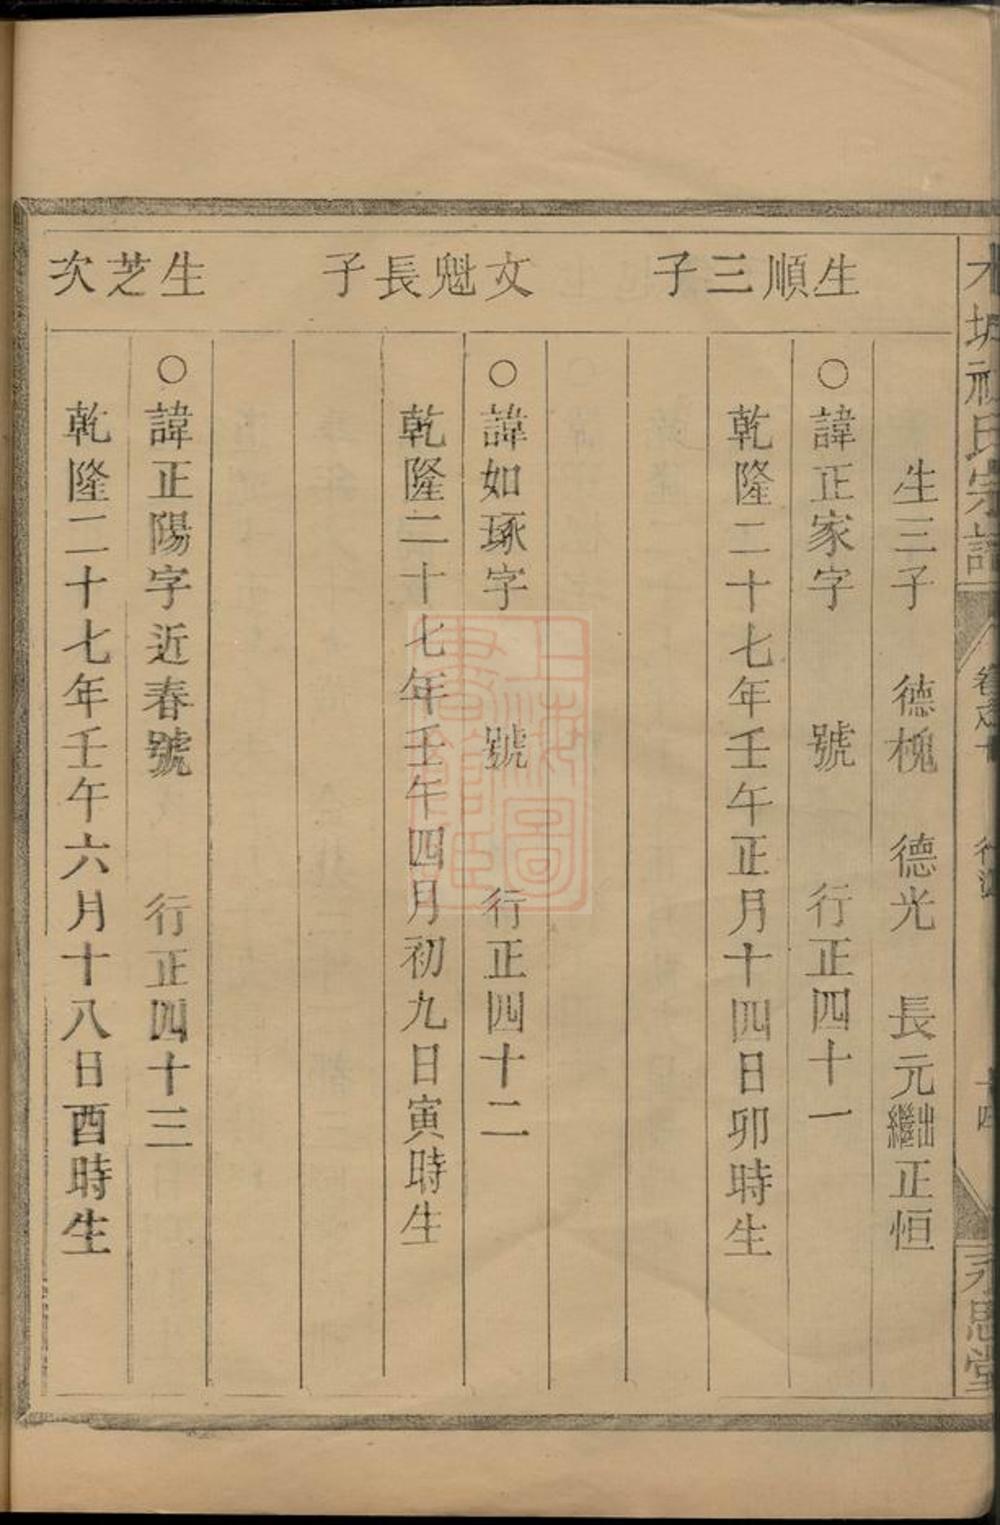 氏宗譜
卷之十
行派
十四
永思堂
生三子　德槐　德光　長元出繼正恒
生順三子
○諱正家字　號　行正四十一
乾隆二十七年壬午正月十四日卯時生
文魁長子
○諱如琢字　號　行正四十二
乾隆二十七年壬午四月初九日寅時生
生芝次
○諱正陽字近春號　行正四十三
乾隆二十七年壬午六月十八日酉時生
上海圖書館藏